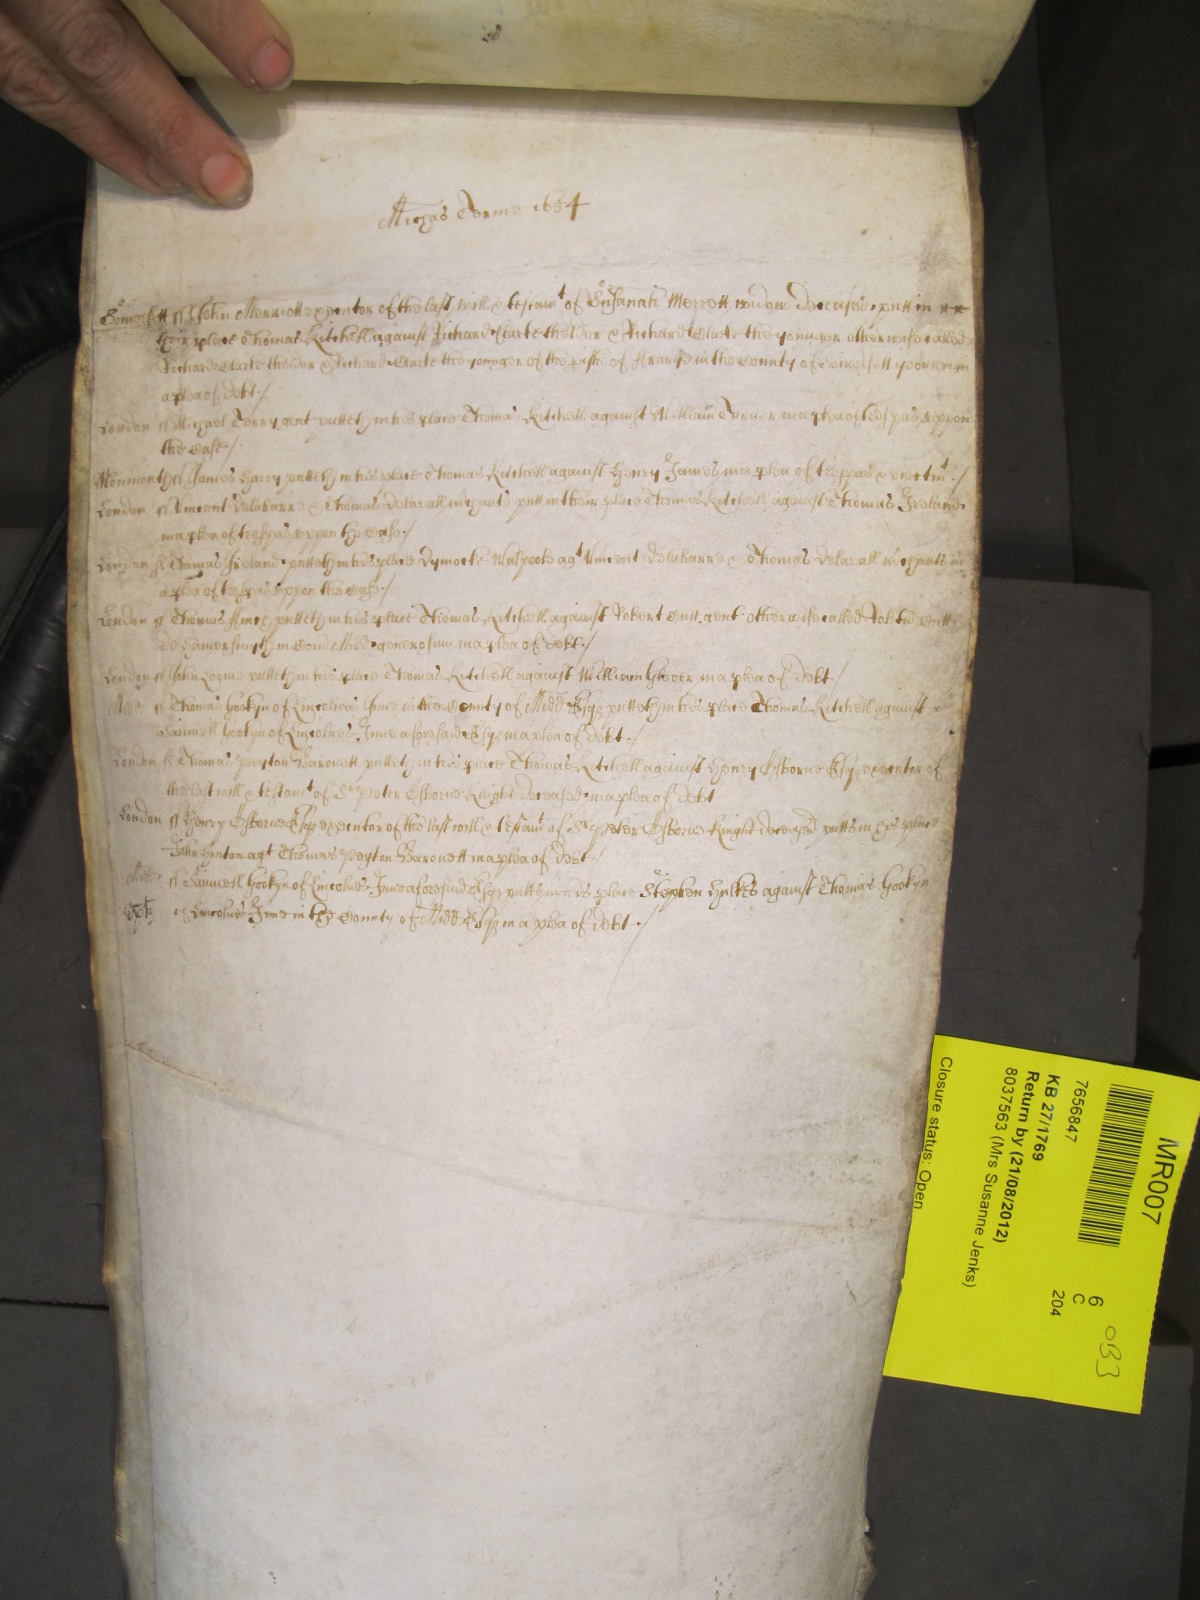 Michas Terme 1654
Somersett ss John Merriott executor of the last will & testamt of Susanah Merrett widow deceased putt in
heir place Thomas Kitchell against Richard Clarke thelder & Richard Clarke the younger otherwise called
Richard Clarke thelder & Richard Clarke the younger of the pishe of in the County of Somersett yeomen in
a plea of debt /
London ss Michael Terry gent putteth in his place Thomas Kitchell against William Turner in a plea of trespas uppon
the Case /
Monmouth ss James Harry putteth in his place Thomas Kitchell against Henry James in a plea of trespas & eiectmt /
London ss Vincent Delabarre & Thomas Delavall mrchants putt in their place Thomas Kitchell against Thomas Ireland
in a plea of trespas uppon the Case /
London ss Thomas Ireland putteth in his place Dymocke Walpoole agt Vincent Delabarre & Thomas Delavall mrchants in
a plea of trespas uppon the Case /
London ss Thomas putteth in his place Thomas Kitchell against Robert gent otherwise called Robtu
de Hamersmyth in Com Midd generosum in a plea of debt /
London ss John Loome putteth in his place Thomas Kitchell against William Glover in a plea of debt /
Midd ss Thomas Gookyn of Lincolnes Inne in the County of Midd Esqr putteth in his place Thomas Kitchell against
Samuell Gookyn of Lincolnes Inne aforesaid Esqr in a plea of debt /
London ss Thomas Peyton Baronett putteth in his place Thomas Kitchell against Henry Osborne Esqr executor of
the last will & testamt of Sr Peter Osborne Knight deceased in a plea of debt
London ss Henry Osborne Esqr executor of the last will & testamt of Sr Peter Osborne Knight deceased putts in his place
John Hynton agt Thomas Peyton Baronett in a plea of debt /
ss Samuell Gookyn of Lincolnes Inne aforesaid Esqr putts in his place Stephen Hulkes against Thomas Gookyn
of Lincolnes Inne in the County of Midd Esqr in a plea of debt /
MR007
7656847
KB 27/1769
Return by (21/08/2012)
8037563 (Mrs Susanne Jenks)
Closure status: Open
6
C
204